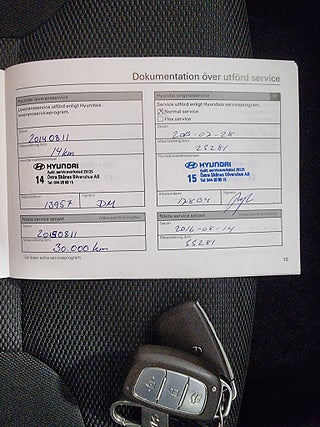 Dokumentation över utförd service
Hyundai leveransservice
Leveransservice utförd enligt Hyundais
leveransserviceprogram.
Datum
20140811
Mätarställning (km)
14 km
HYUNDAI
14
Aukt. serviceverkstad 28125
Östra Skånes Bilvaruhus AB
13957
DM
Nästa service senast
Datum
20150811
Mätarställning (km)
30.000 km
Se även extra serviceprogram.
Hyundai originalservice
1
Service utförd enligt Hyundais serviceprogram.
Normal service
Flex service
Datum
Mätarställning (km)
25281
HYUNDAI
15
Aukt. serviceverkstad 28125
Östra Skånes Bilvaruhus AB
Signatur
Nästa service senast
Datum
2016-08-14
Mätarställning (km)
55281
15